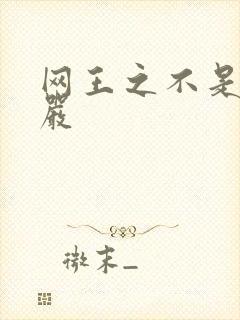 网王之不是
嚴
微末_